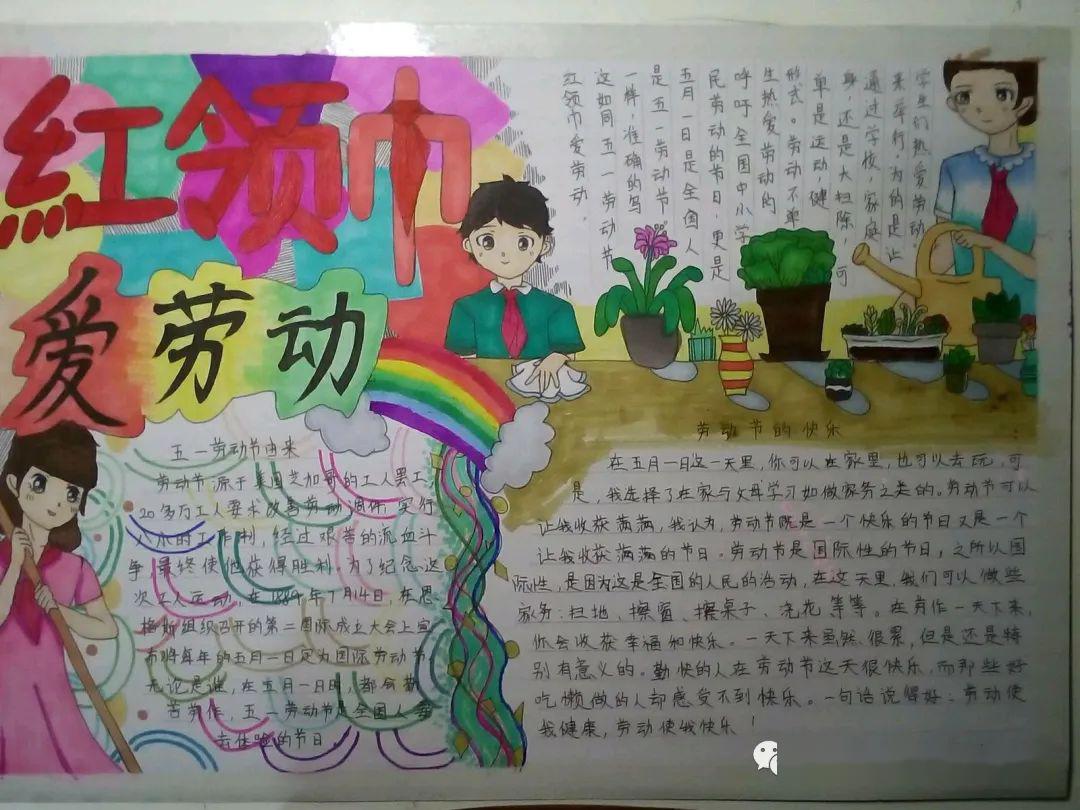 红领巾
爱劳动
红领巾爱劳动，
这如同五一劳动节
一样，准确的写
是五一劳动节。
五月一日是全国人
民劳动的节日，更是
呼吁全国中小学
生热爱劳动的
形式。劳动不单
单是运动健
身，还是大扫除，可
通过学校、家庭
来举行，为的是让
学生们热爱劳动
五一劳动节由来
劳动节源于美国芝加哥的工人罢工，
20多万工人要求改善劳动条件，实行
八小时工作制，经过艰苦的流血斗
争，最终使他获得胜利。为了纪念这
次工人运动，在1889年7月14日，在恩
格斯组织召开的第二国际成立大会上宣
布将每年的五月一日定为国际劳动节。
无论是谁，在五月一日时，都会勤
苦劳作，五一劳动节是全国人要
去体验的节日
劳动节的快乐
在五月一日这一天里，你可以在家里，也可以去玩，可
是，我选择了在家与父母学习如做家务之类的。劳动节可以
让我收获满满，我认为，劳动节既是一个快乐的节日又是一个
让我收获满满的节日。劳动节是国际性的节日，之所以国
际性，是因为这是全国的人民的活动，在这天里，我们可以做些
家务：扫地、擦窗、擦桌子、浇花等等。在劳作一天下来，
你会收获幸福和快乐。一天下来虽然很累，但是还是特
别有意义的。勤快的人在劳动节这天很快乐，而那些好
吃懒做的人却感受不到快乐。一句话说得好：劳动使
我健康，劳动使我快乐！